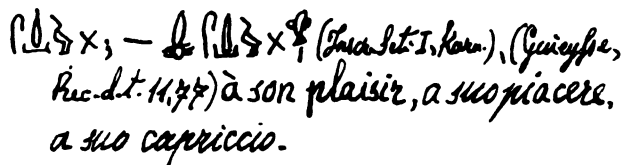 ×, — × (Inscr. Set. I, Karn.), (Guieysse,
Rec. d. t. 11,77) à son plaisir, a suo piacere,
a suo capriccio.